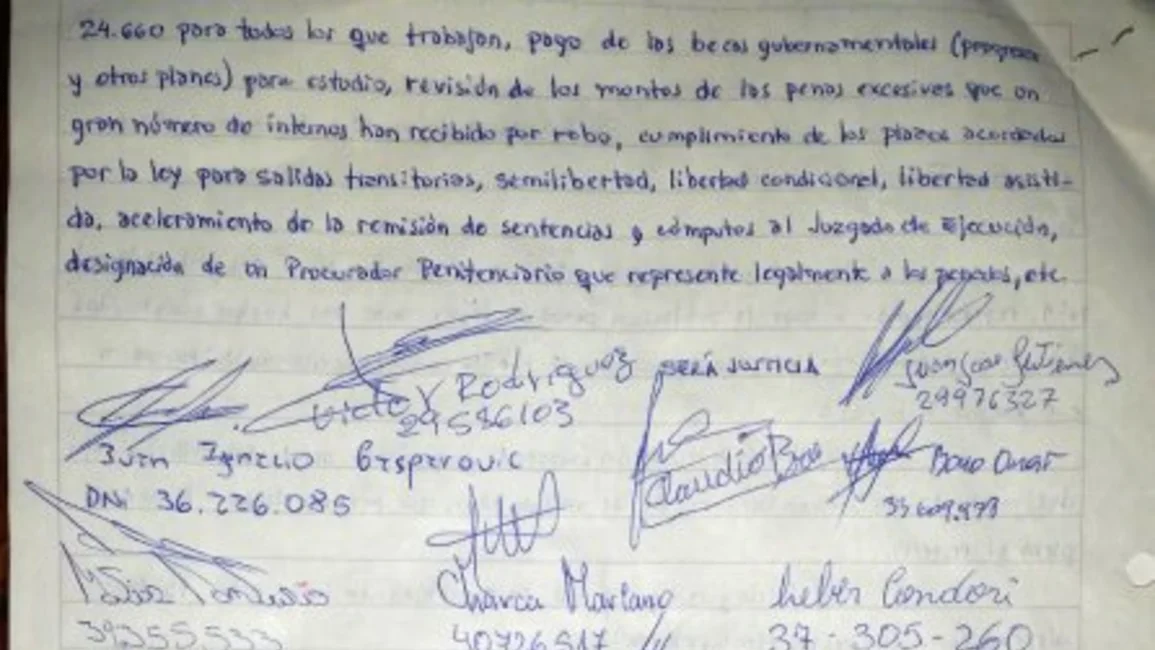 24.660 para todos los que trabajan, pago de las becas gubernamentales (progresar
y otros planes) para estudio, revisión de los montos de las penas excesivas que un
gran número de internos han recibido por robo, cumplimiento de los plazos acordados
por la ley para salidas transitorias, semilibertad, libertad condicional, libertad asisti-
da, aceleramiento de la remisión de sentencias y cómputos al Juzgado de Ejecución,
designación de un Procurador Penitenciario que represente legalmente a los penados, etc.
SERÁ JUSTICIA
Victor Rodriguez
29586103
29976327
Juan Ignacio Gasparovic
DNI 36.226.085
Claudio
Omar
33609.973
Charca Mariano
Heber Condori
39355533
40726517
37-305-260